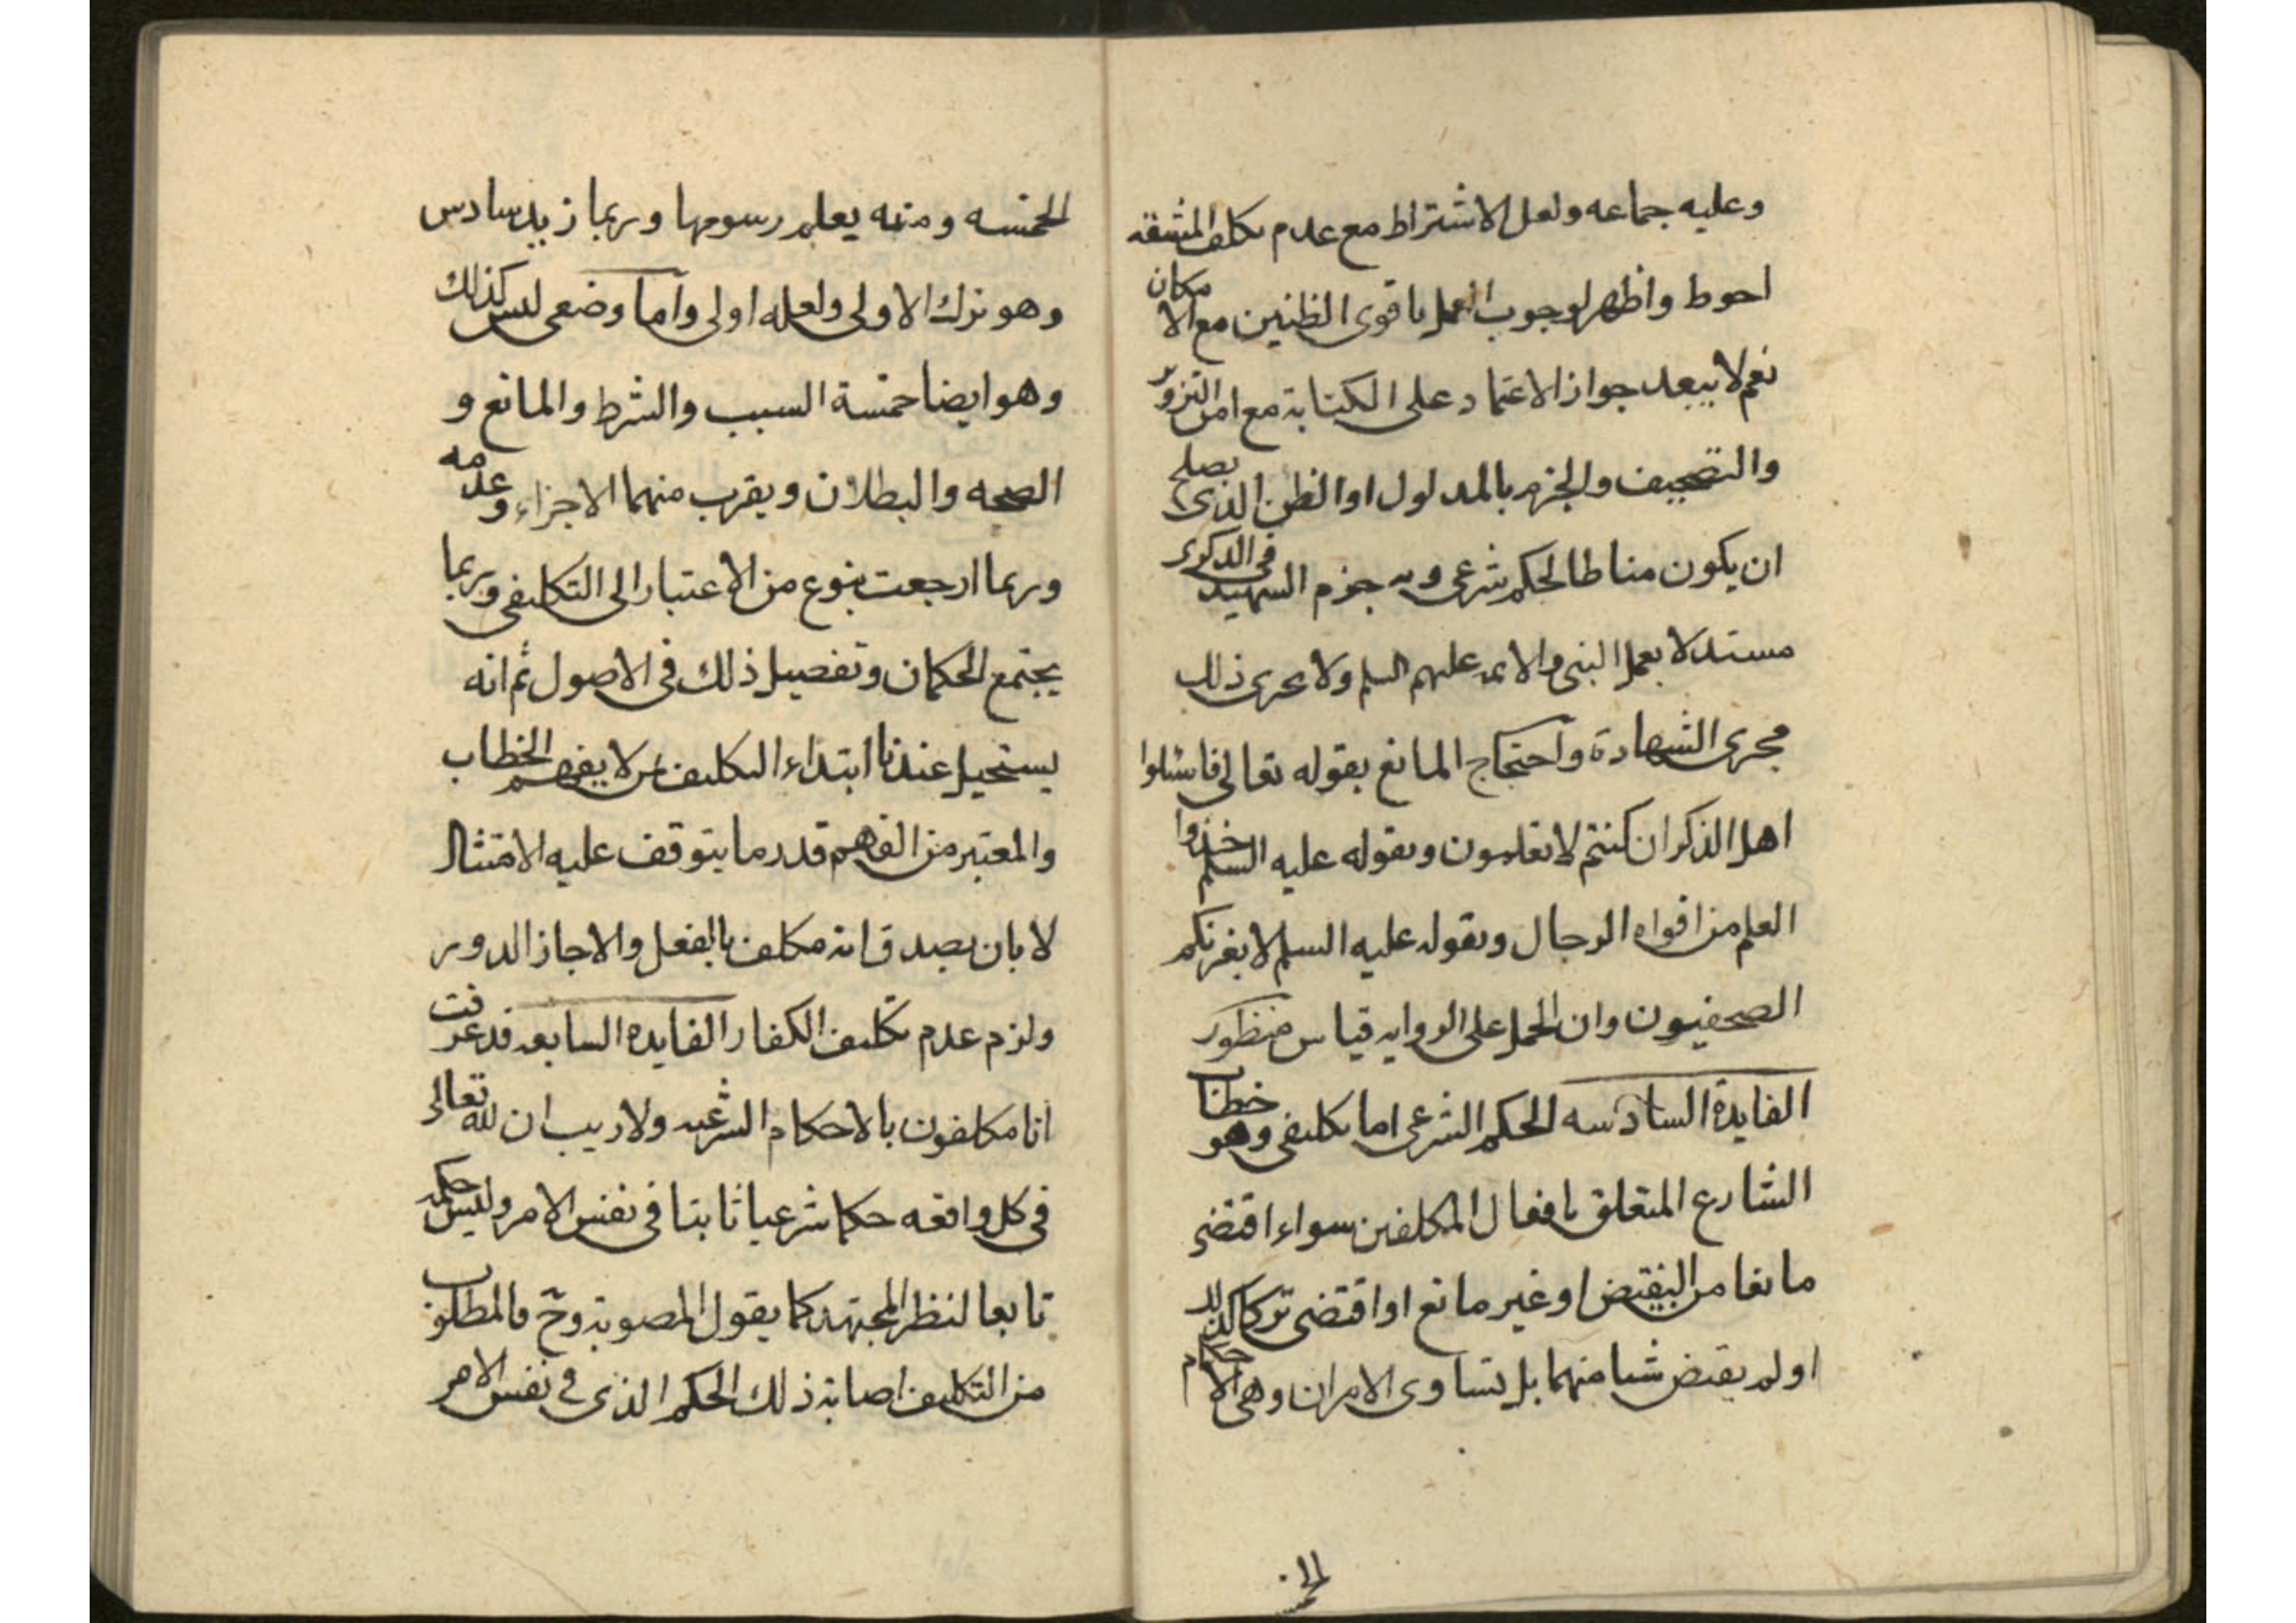 وعليه جماعه ولعل الاشتراط مع عدم تكلف المشقه
احوط واظهر لوجوب العمل باقوى الظنين مع الامكان
نعم لا يبعد جواز الاعتماد على الكتابة مع امن التزوير
والتصحيف والجزم بالمدلول او الظن الذى يصلح
ان يكون مناطا لحكم شرعى وبه جزم الشهيد فى الذكرى
مستدلا بعمل النبى والائمه عليهم السلم ولا يجرى ذلك
مجرى الشهادة واحتجاج المانع بقوله تعالى فاسئلوا
اهل الذكر ان كنتم لا تعلمون وبقوله عليه السلم خذوا
العلم من افواه الرجال وبقوله عليه السلم لا يغرنكم
الصحفيون وان الحمل على الروايه قياس منظور
الفايدة السادسه الحكم الشرعى اما تكليفى وهو خطاب
الشارع المتعلق بافعال المكلفين سواء اقتضى
مانعا من النقيض او غير مانع او اقتضى تركا كذلك
او لم يقتض شيا منهما بل يتساوى الامران وهى الاحكام
الخمسه
الخمسه ومنه يعلم رسومها وربما زيد سادس
وهو ترك الاولى ولعله اولى واما وضعى ليس كذلك
وهو ايضا خمسة السبب والشرط والمانع و
الصحه والبطلان ويقرب منهما الاجزاء وعدمه
وربما ارجعت بنوع من الاعتبار الى التكليفى وربما
يجتمع الحكمان وتفصيل ذلك فى الاصول ثم انه
يستحيل عندنا ابتداء التكليف من لا يفهم الخطاب
والمعتبر من الفهم قدر ما يتوقف عليه الامتثال
لا بان يصدق انه مكلف بالفعل والا جاز الدور
ولزم عدم تكليف الكفار الفايده السابعه قد عرفت
انا مكلفون بالاحكام الشرعيه ولا ريب ان لله تعالى
فى كل واقعه حكما شرعيا ثابتا فى نفس الامر وليس حكمه
تابعا لنظر المجتهد كما يقول المصوبة وح فالمطلوب
من التكليف اصابة ذلك الحكم الذى فى نفس الامر